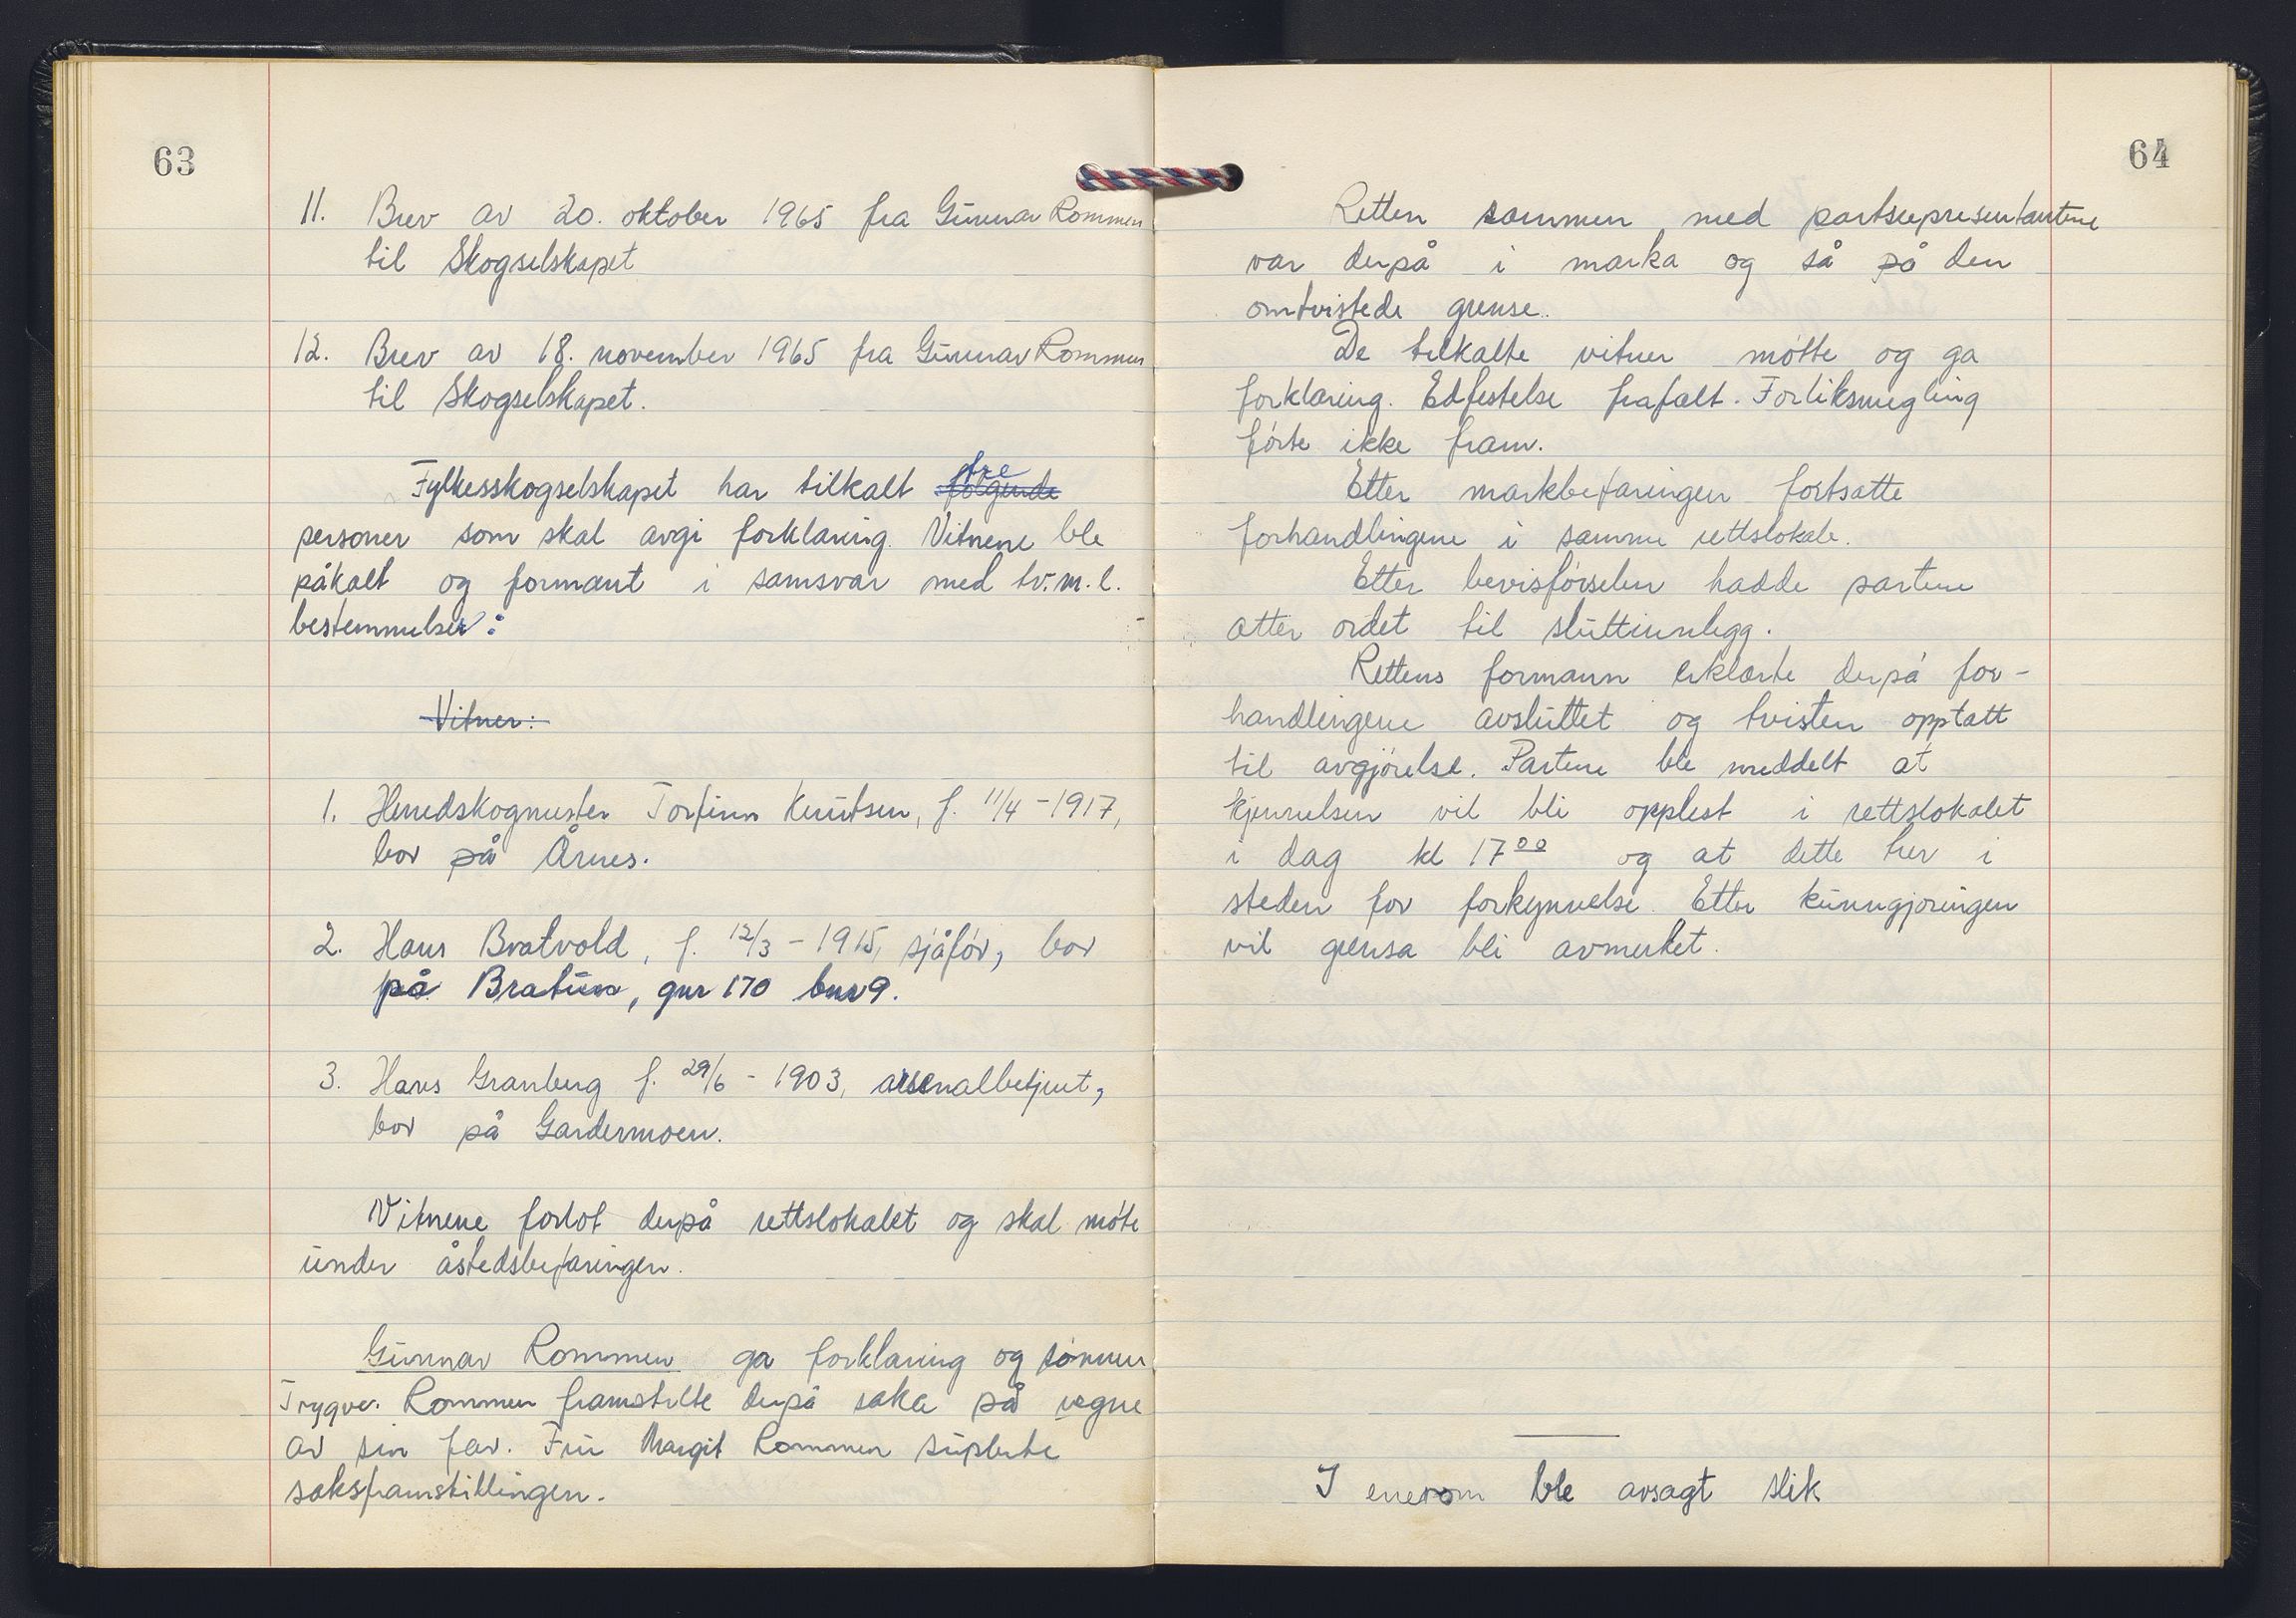 63
11. Brev av 20. oktober 1965 fra Gunnar Rommen
til Skogselskapet
12. Brev av 18. november 1965 fra Gunnar Rommen
til Skogselskapet.
Fylkesskogselskapet har tilkalt følgende tre
personer som skal avgi forklaring. Vitnene ble
påkalt og formant i samsvar med tv.m.l.
bestemmelser:
Vitner:
1. Herredskogmester Torfinn Knutsen, f. 11/4 - 1917,
bor på Årnes.
2. Hans Bratvold, f. 12/3 - 1915, sjåfør, bor
på Bratun, gnr 170 bnr 9.
3. Hans Granberg f. 29/6 - 1903, arsenalbetjent,
bor på Gardermoen.
Vitnene forlot derpå rettslokalet og skal møte
under åstedsbefaringen.
Gunnar Rommen ga forklaring og sønnen
Trygve Rommen framstilte derpå saka på vegne
av sin far. Fru Margit Rommen suplerte
saksframstillingen.
64
Retten sammen med partsrepresentantene
var derpå i marka og så på den
omtvistede grense.
De tilkalte vitner møtte og ga
forklaring. Edfestelse frafalt. Forliksmegling
førte ikke fram.
Etter markbefaringen fortsatte
forhandlingene i samme rettslokale.
Etter bevisførselen hadde partene
atter ordet til sluttinnlegg.
Rettens formann erklærte derpå for-
handlingene avsluttet og tvisten opptatt
til avgjørelse. Partene ble meddelt at
kjennelsen vil bli opplest i rettslokalet
i dag kl 17 00 og at dette trer i
steden for forkynnelse. Etter kunngjøringen
vil grensa bli avmerket.
I enerom ble avsagt slik